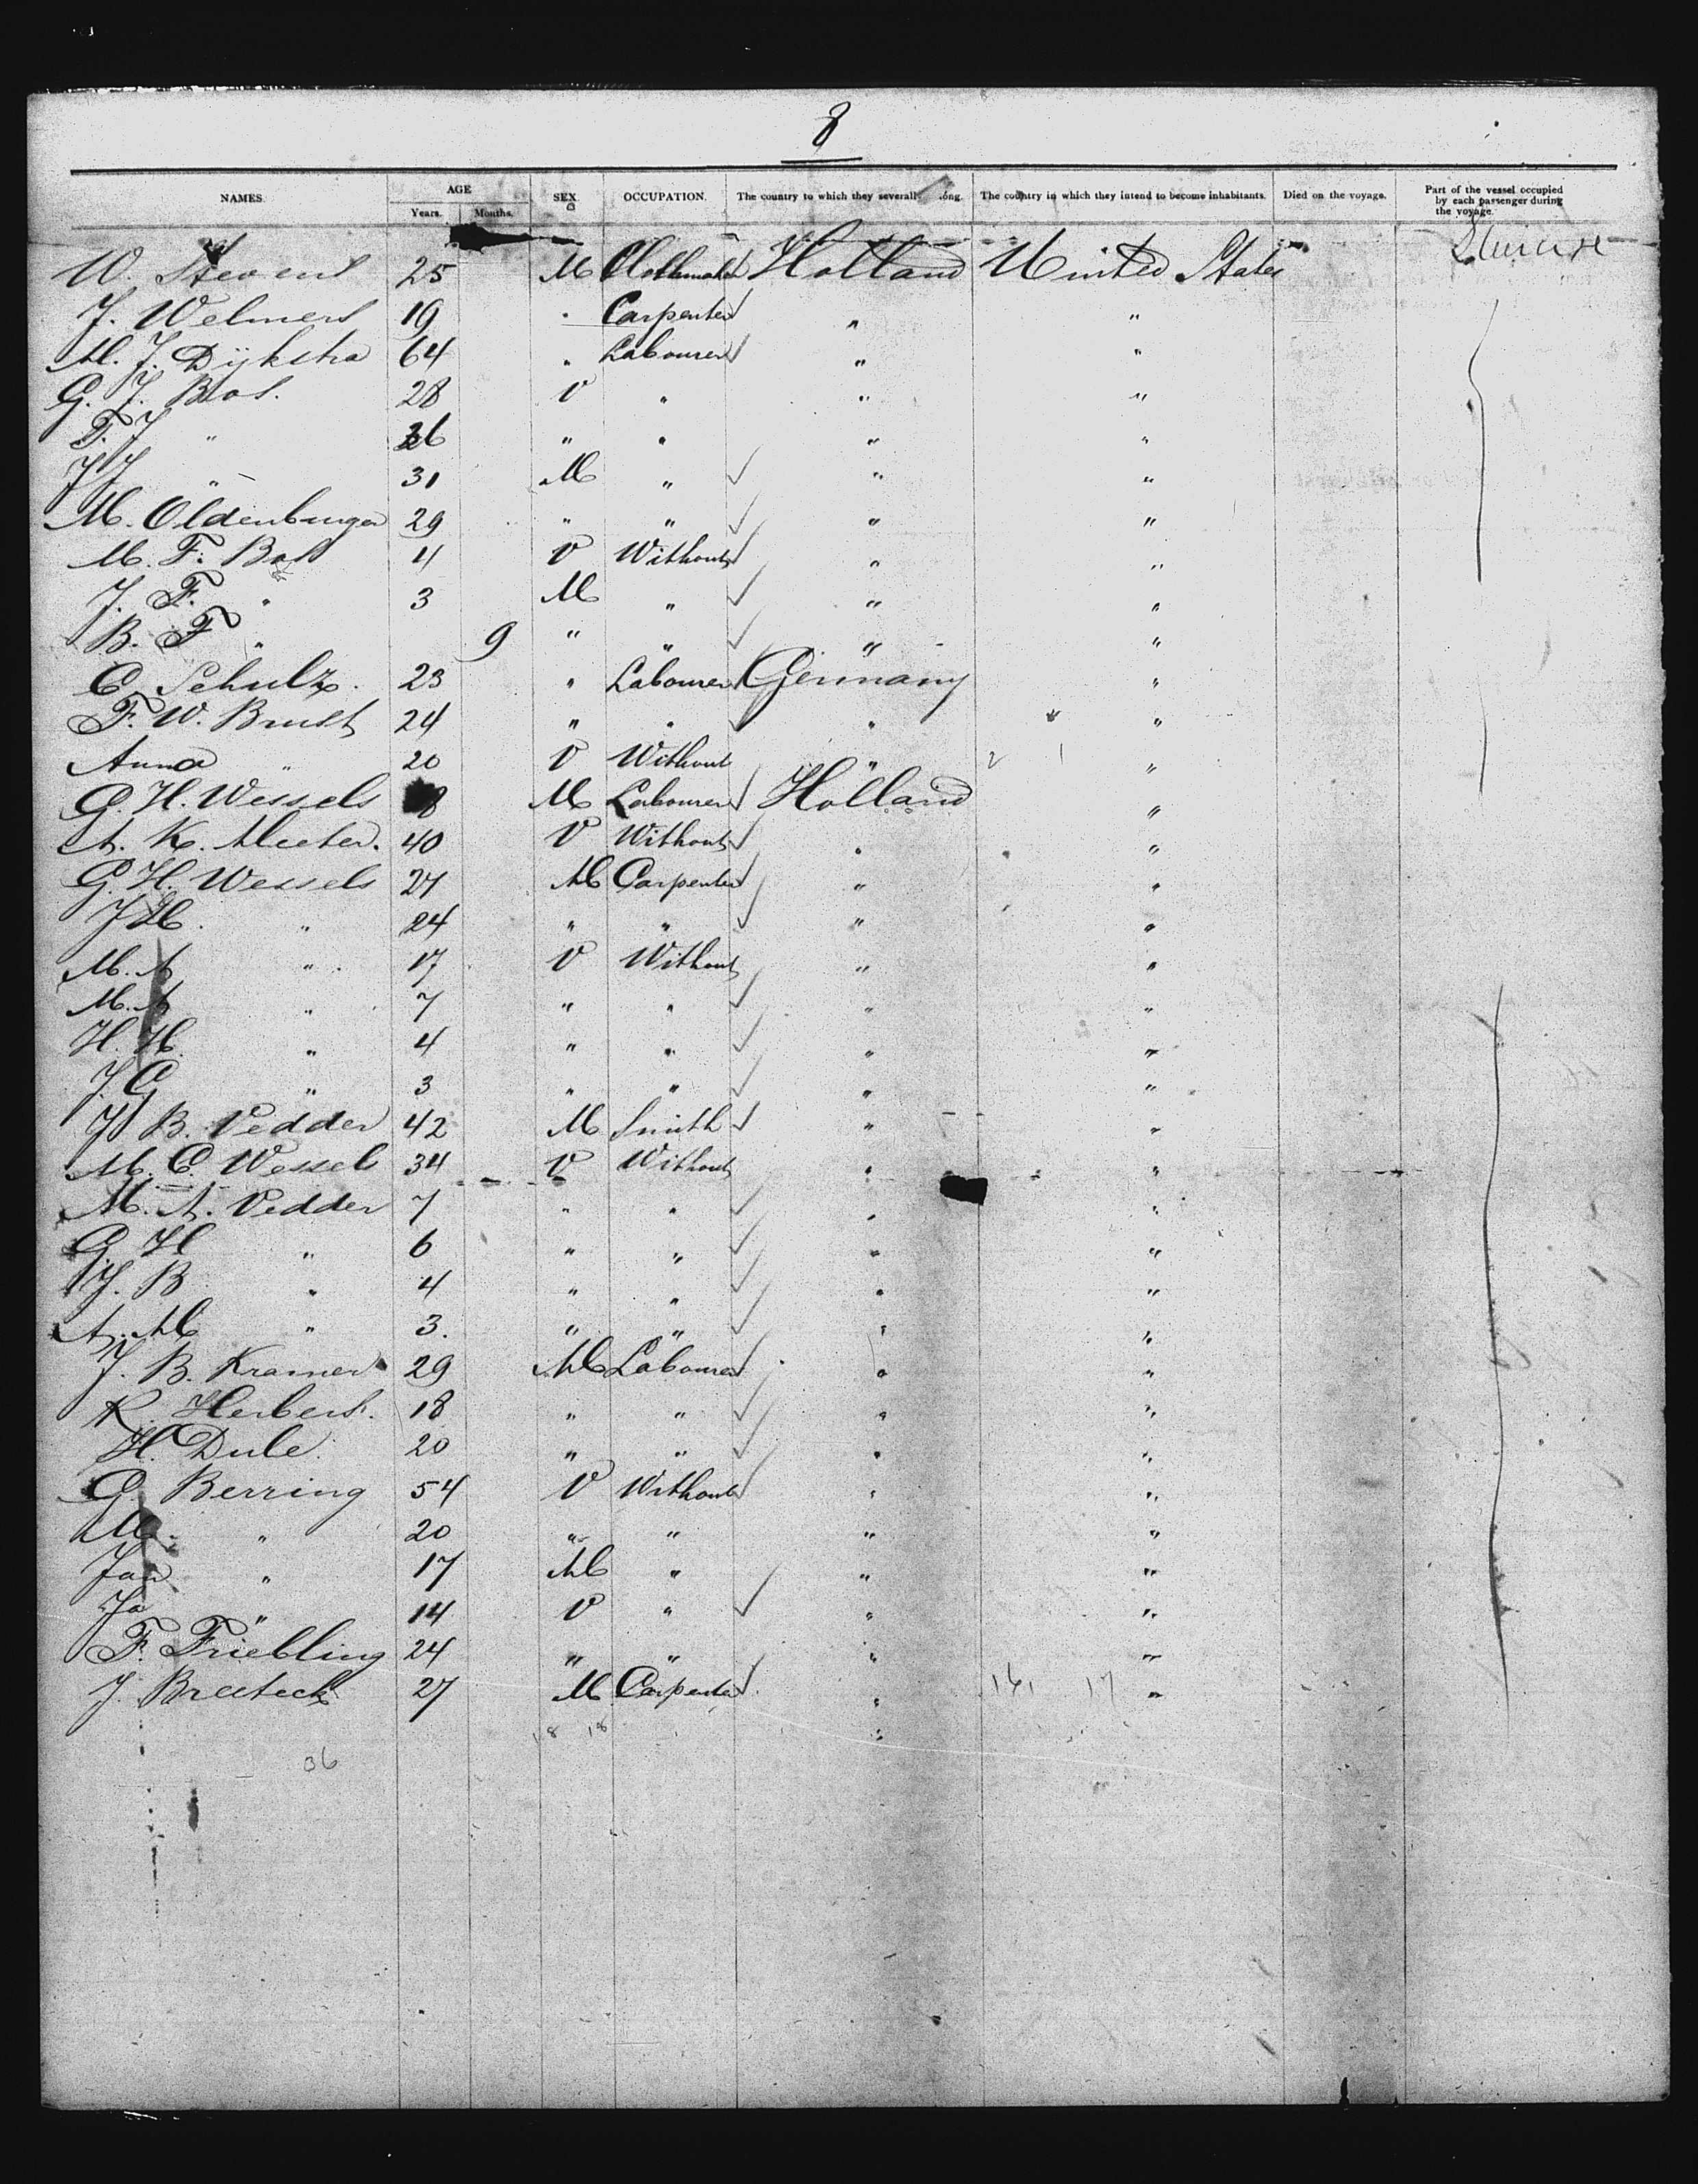 8
NAMES. AGE SEX. OCCUPATION. The country to which they severally The country in which they intend to become inhabitants. Died on the voyage. Part of the vessel occupied by each passenger during the voyage.
Years. Months.
W. Stevens 25 M Holland United States
J. Welmers 19 " Carpenter " "
M. J. Dijkstra 64 " Labourer " "
G. J. Bos. 28 V " " "
T. J " 36 " " " "
J J " 31 M " " "
M. Oldenburger 29 " " " "
M. F. Bos 4 V Without " "
J. F. " 3 M " " "
B. F " 9 " " " "
C Schulz. 23 " Labourer Germany "
F. W. Brust 24 " " " "
Anna " 20 V Without " 2 1 "
G. H. Wessels 8 M Labourer Holland "
A. K. Meeter. 40 V Without " "
G. H. Wessels 27 M Carpenter " "
J H. " 24 " " " "
M. A " 17 V Without " "
M. A " 7 " " " "
H. H. " 4 " " " "
J. G " 3 " " " "
J B. Vedder 42 M Smith " "
M. C. Wessels 34 V Without " "
M. A. Vedder 7 " " " "
G. H " 6 " " " "
J. B " 4 " " " "
A. M " 3. " " " "
J. B. Kramer 29 M Labourer " "
R. Herbers. 18 " " " "
H. Dule. 20 " " " "
G. Berring 54 V Without " "
M. " 20 " " " "
Jan " 17 M " " "
Jo " 14 V " " "
F. Friebling 24 " " " "
J. 27 M Carpenter " 16 17 "
18 18 "
36